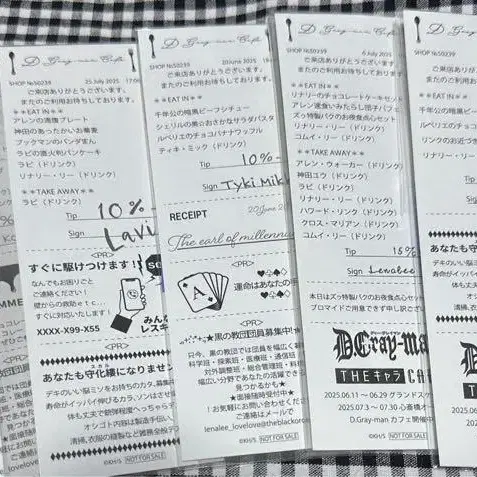 D.Gray-man Cafe
SHOP №S0239
25 July 2025 17:0
ご来店ありがとうございます。
またのご利用お待ちしております。
**EAT IN**
アレンの満腹プレート
神田のあったかいお蕎麦
ブックマンのパンダまん
ラビの直火判パンケーキ
ラビ（ドリンク）
リナリー・リー（ドリンク）
**TAKE AWAY**
ラビ（ドリンク）
Tip 10%
Sign Lavi
<PR>
すぐに駆けつけます！
なんでもお困りごと
ご連絡ください！
壁からの救助 etc...
すぐに対応いたします！
XXXX-X99-X55
みんな
レスキ
<PR>
あなたも守化縷になりません
スカル
デキのいい脳ミソをお持ちのカタ、募集中
寿命がイッパイ伸びるカラ、ソンはさせ
体も丈夫で銃弾程度へっちゃら
オシゴト内容は製造手伝い、
清掃、衣服の縫製など雑務全般デ
©KH/S NOT FOR SALE
D.Gray-man Cafe
SHOP №S0239
20 June 2025
ご来店ありがとうございます。
またのご利用お待ちしております。
**EAT IN**
千年公の暗黒ビーフシチュー
シェリルの美☆おおきなサラダパスタ
ルベリエのチョコバナナワッフル
ティキ・ミック（ドリンク）
Tip 10%
Sign Tyki Mik
RECEIPT
20 June 20
The earl of millenniu
<PR>
A
運命はあなたの手
<PR>
★黒の教団団員募集中！
只今、黒の教団では団員を幅広く募
科学班・探索班・医療班・通信班
対外調整班・総合管理班・料
幅広い分野であなたの活躍でき
見つかるかも★
★面接随時受付中★
！お気軽にお問い合わせくださ
ご連絡はメールで
lenalee_lovelove@theblackorc
©KH/S NOT FOR SALE
D.Gray-man Cafe
SHOP №S0239
6 July 2025
ご来店ありがとうございます。
またのご利用お待ちしております。
**EAT IN**
リナリーのチョコレートケーキセット
アレン速食いみたらし団子パフ
ズゥ特製パクのお夜食点心セット
リナリー・リー（ドリンク）
コムイ・リー（ドリンク）
**TAKE AWAY**
アレン・ウォーカー（ドリンク）
神田ユウ（ドリンク）
ラビ（ドリンク）
リナリー・リー（ドリンク）
ハワード・リンク（ドリンク）
クロス・マリアン（ドリンク）
コムイ・リー（ドリンク）
Tip 15%
Sign Lenalee
本日はズゥ特製パクのお夜食点心セット
ブロマイドご用意できず申し訳ござい
D.Gray-man
THEキャラ CA
2025.06.11 〜 06.29 グランドスケ
2025.07.3 〜 07.30 心斎橋オ
D.Gray-man カフェ開催中
©KH/S NOT FOR SALE
D.Gray
SHOP №S0239
ご来店あり
またのご利用
**EAT IN**
千年公の暗黒ビー
ルベリエのチョコ
リンクのお近づ
ティ
Tip
Sign
あなたも守化
デキのいい脳ミソを
寿命がイッパイ伸
体も丈夫
オシゴ
清掃、衣服
D.Gra
THE
2025.06.1
2025.07.
D.G